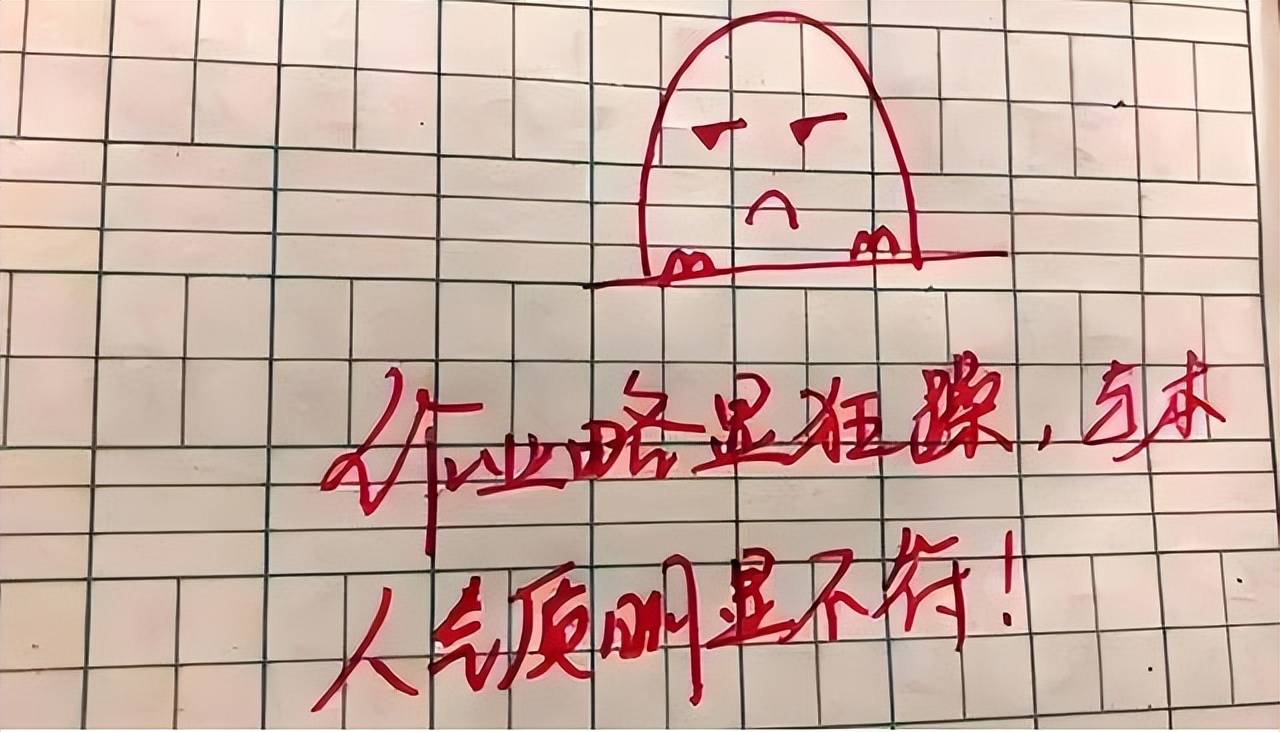 作业略显狂躁，与本
人气质明显不符！